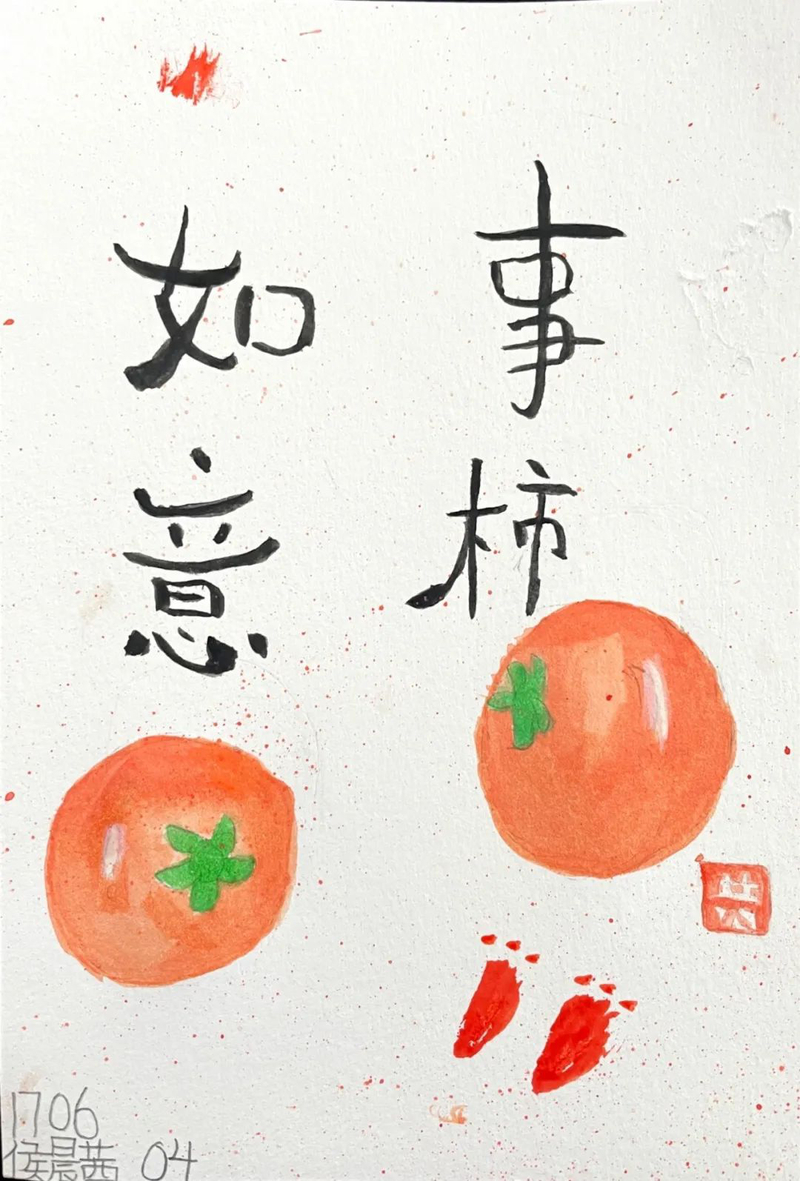 事柿
如意
1706
侯晨茜 04